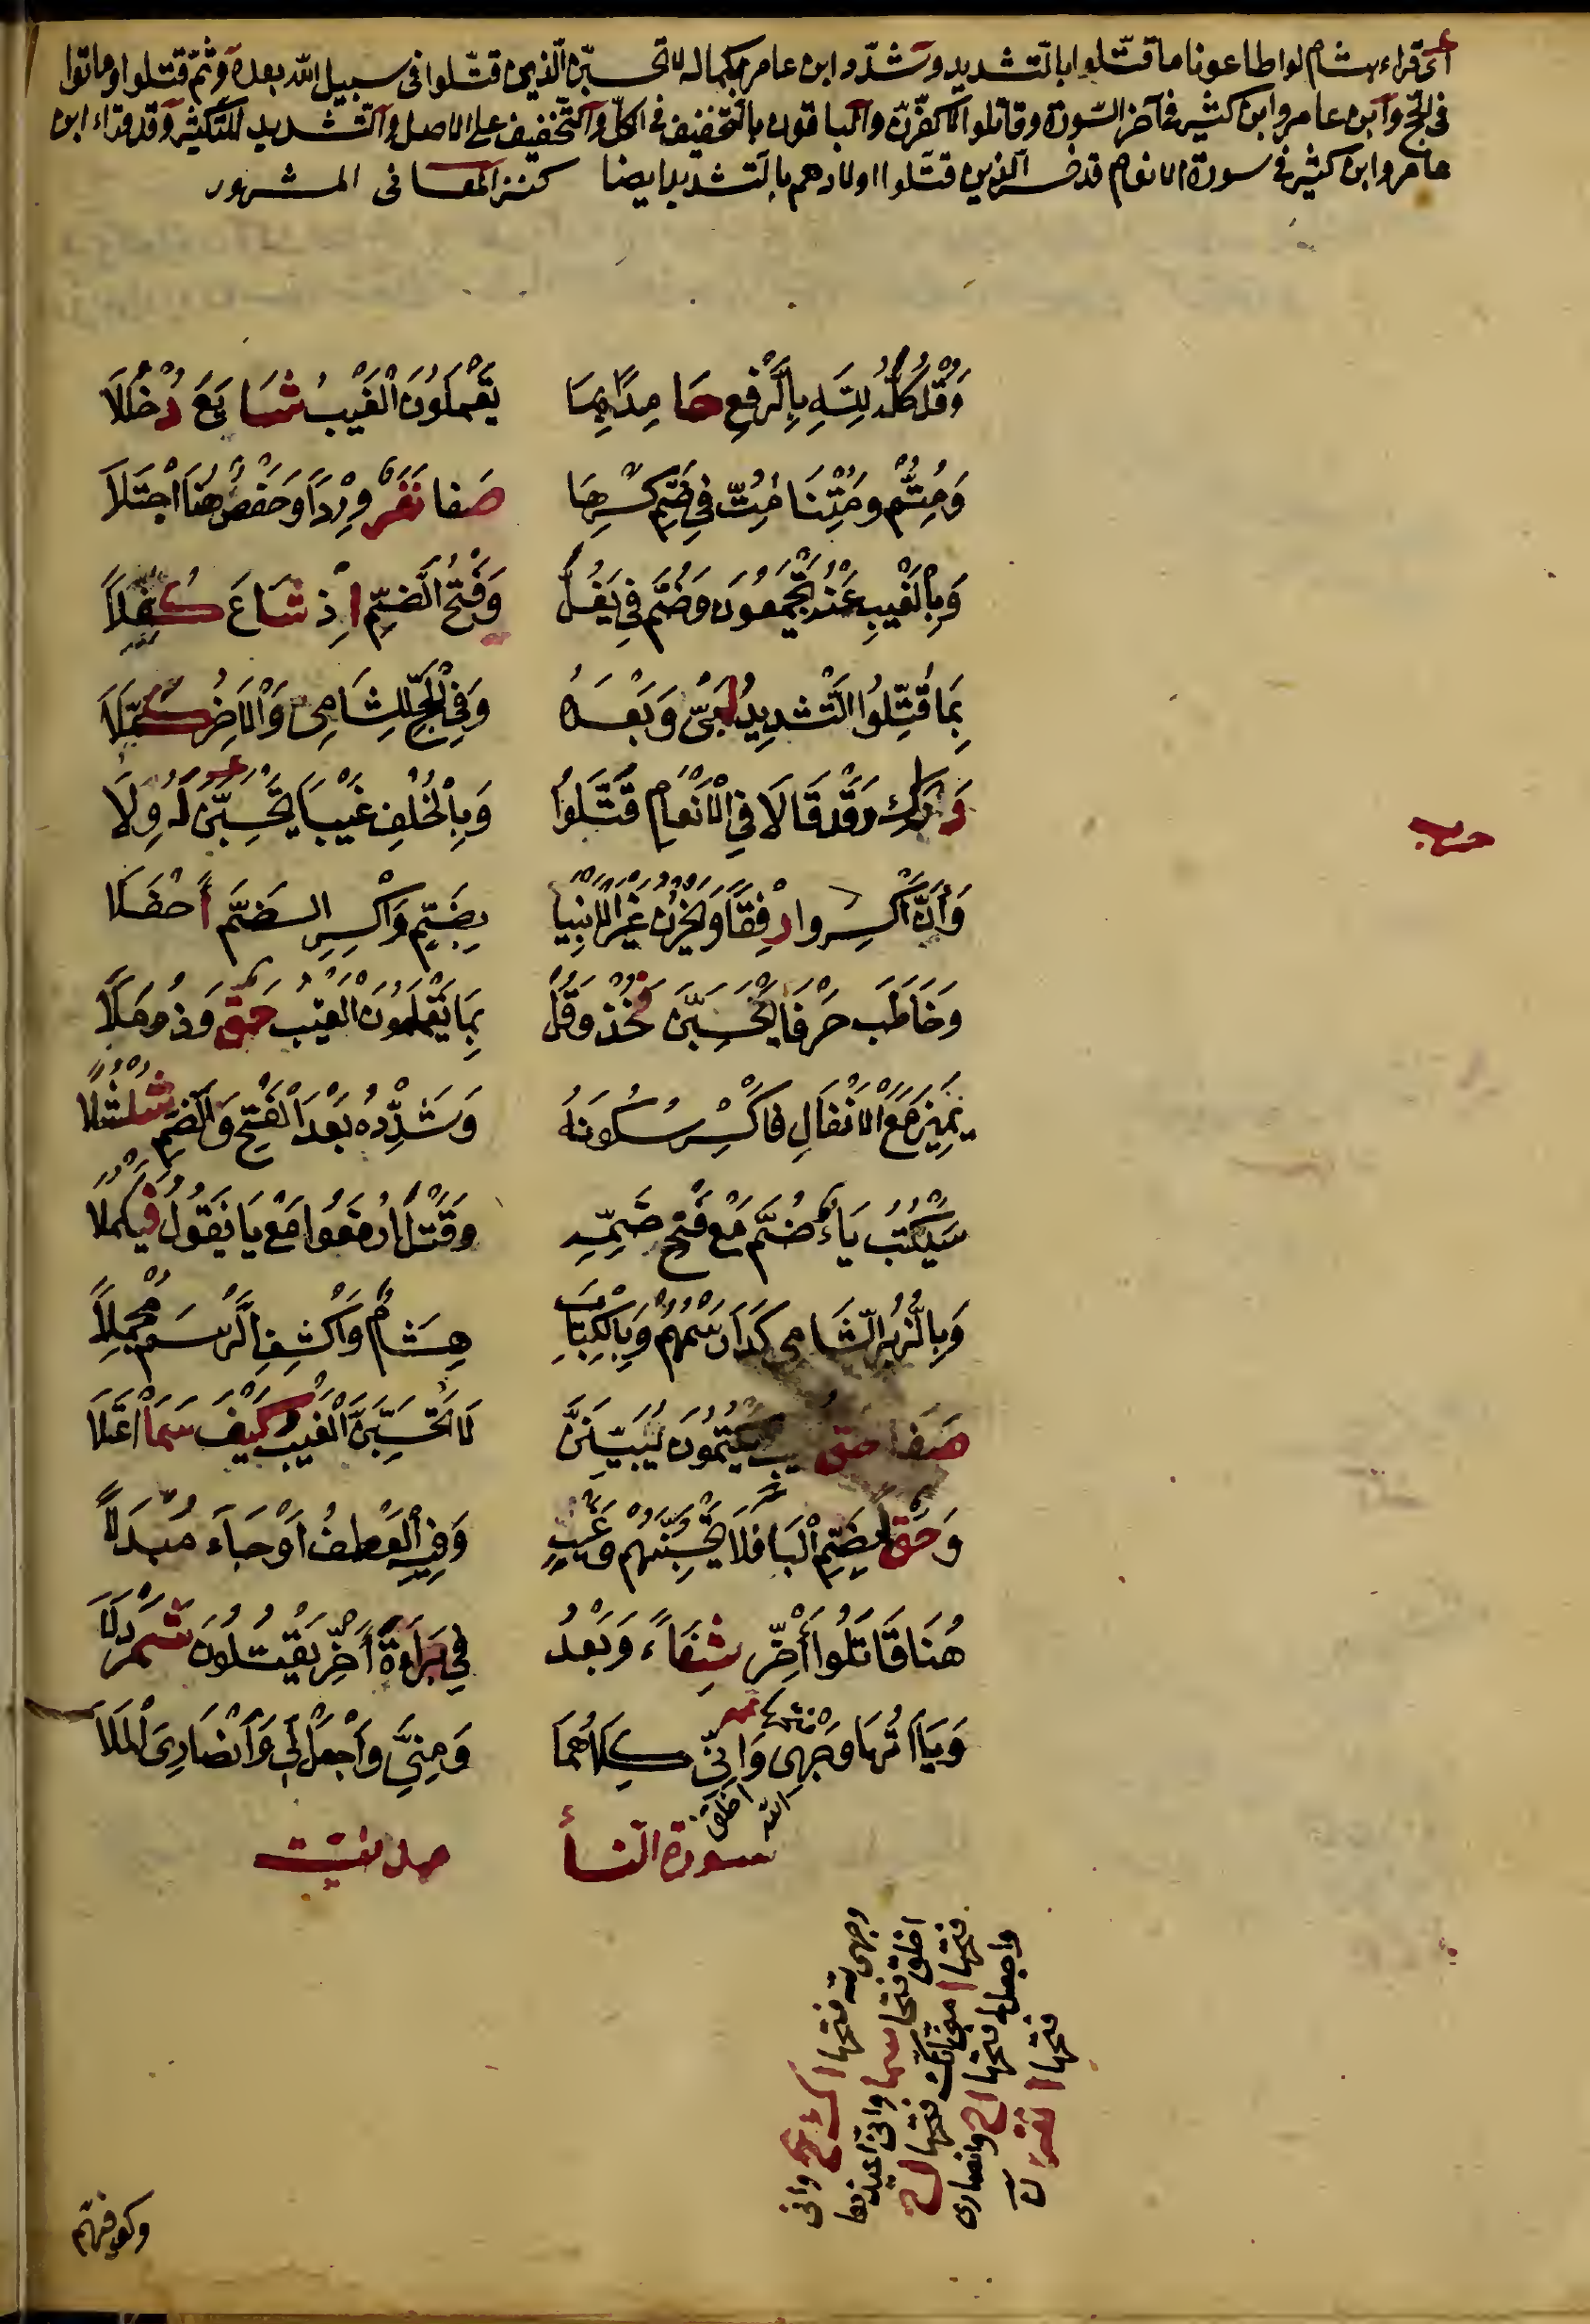 أى قراء هشام لو اطاعونا ما قتّلوا بالتّشديد وشدّد ابن عامر بكماله لا تحسبنّ الّذين قتّلوا فى سبيل الله بعده وثمّ قتلوا او ماتوا
فى الحجّ وابن عامر وابن كثير فى آخر السّورة وقاتلوا لاكفّرنّ والباقون بالتّخفيف فى الكلّ والتّخفيف على الاصل والتّشديد للتّكثير وقد قراء ابن
عامر وابن كثير فى سورة الانعام قد خسر الّذين قتّلوا اولادهم بالتّشديد ايضا كنز المعانى المشهور
وَقُلْ كُلُّهُ لِلَّهِ بِالرَّفْعِ حَامِدًا بِمَا يَعْمَلُونَ الْغَيْبُ شَايَعَ دُخْلُلَا
وَمِتُّمْ وَمِتْنَا مِتُّ فِي ضَمِّ كَسْرِهَا صَفَا نَفَرٌ وِرْدًا وَحَفْصٌ هُنَا اجْتَلَا
وَبِالْغَيْبِ عَنْهُ يَجْمَعُونَ وَضُمَّ فِي يَغُلَّ وَفَتْحُ الضَّمِّ إِذْ شَاعَ كُفِّلَا
بِمَا قُتِّلُوا التَّشْدِيدُ لَبَّى وَبَعْدَهُ وَفِي الْحَجِّ لِلشَّامِي وَالْآخِرُ كَمَّلَا
دَرَاكِ وَقَدْ قَالَا فِي الْأَنْعَامِ قَتَّلُوا وَبِالْخُلْفِ غَيْبًا يَحْسَبَنَّ لَهُ وَلَا
وَأَنَّ اكْسِرُوا رِفْقًا وَيَحْزُنُ غَيْرَ الْأَنْبِيَا بِضَمٍّ وَاكْسِرِ الضَّمَّ أَحْفَلَا
وَخَاطَبَ حَرْفَا يَحْسَبَنَّ فَخُذْ وَقُلْ بِمَا يَعْمَلُونَ الْغَيْبُ حَقٌّ وَذُو مَلَا
يَمِيزَ مَعَ الْأَنْفَالِ فَاكْسِرْ سُكُونَهُ وَشَدِّدْهُ بَعْدَ الْفَتْحِ وَالضَّمِّ شُلْشُلَا
سَيُكْتَبُ يَاءٌ ضُمَّ مَعْ فَتْحِ ضَمِّهِ وَقَتْلَ ارْفَعُوا مَعْ يَا نَقُولُ فَيَكْمُلَا
وَبِالزُّبُرِ الشَّامِي كَذَا رَسْمُهُمْ وَبِالْكِتَابِ هِشَامٌ وَاكْشِفِ الرَّسْمَ مُجْمِلَا
صَفَا حَقُّ غَيْبٍ يَكْتُمُونَ يُبَيِّنُنَّ لَا تَحْسَبَنَّ الْغَيْبُ كَيْفَ سَمَا اعْتَلَا
وَحَقًّا بِضَمِّ الْبَا فَلَا يَحْسِبُنَّهُمْ وَغَيْبٍ وَفِيهِ الْعَطْفُ أَوْ جَاءَ مُبْدَلًا
هُنَا قَاتَلُوا أَخِّرْ شِفَاءً، وَبَعْدُ فِي بَرَاءَةٌ أَخِّرْ يَقْتُلُونَ شَمَرْدَلَا
وَيَاآتُهَا وَجْهِي وَإِنِّي كِلَاهُمَا وَمِنِّي وَاجْعَلْ لِي وَأَنْصَارِيَ الْمِلَا
اخلق
الله
سورة النسأ
وجهى لله فتحها
وانى
اخلق فتحها سما وانى اعيذها
فتحها ا منى انك فتحها ا ح
واجعل لى فتحها ا ح وانصارى
فتحها ا
وكوفيّهم